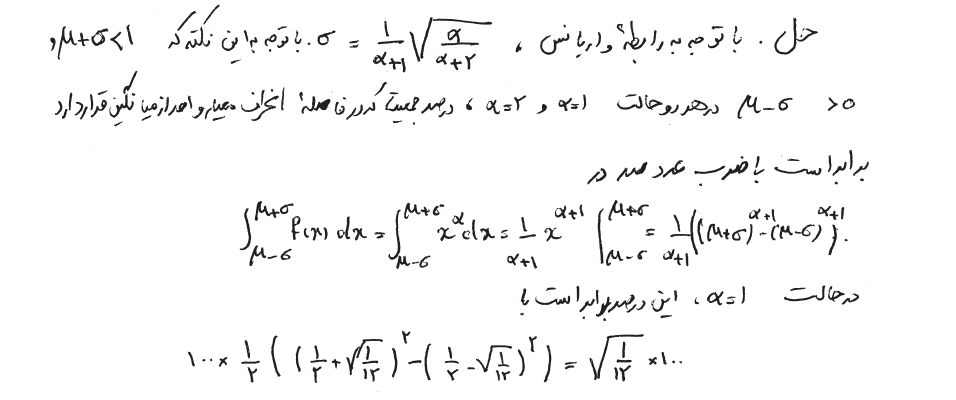 حل. با توجه به رابطهٔ واریانس، σ = \frac{۱}{α+۱}\sqrt{\frac{α}{α+۲}}. با توجه به این نکته که μ+σ<۱ و
μ-σ >۰ در هر دو حالت α=۱ و α=۲، درصد جمعیت که در فاصلهٔ انحراف معیار واحد از میانگین قرار دارد
برابر است با ضرب عدد صد در
\int_{μ-σ}^{μ+σ} f(x) dx = \int_{μ-σ}^{μ+σ} x^{α} dx = \frac{۱}{α+۱} x^{α+۱} |_{μ-σ}^{μ+σ} = \frac{۱}{α+۱}((μ+σ)^{α+۱}-(μ-σ)^{α+۱}).
در حالت α=۱، این درصد برابر است با
۱۰۰ × \frac{۱}{۲} ((\frac{۱}{۲}+\sqrt{\frac{۱}{۱۲}})^۲-(\frac{۱}{۲}-\sqrt{\frac{۱}{۱۲}})^۲) = \sqrt{\frac{۱}{۱۲}} ×۱۰۰